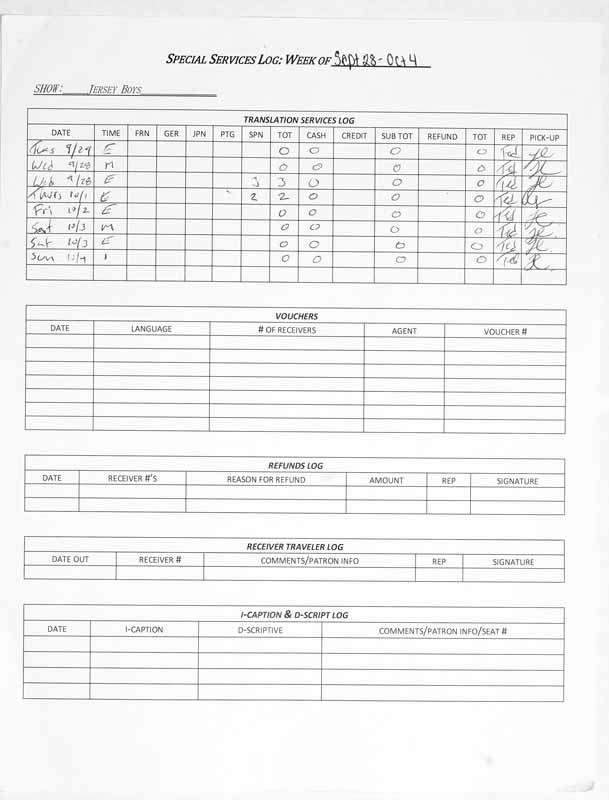 SPECIAL SERVICES LOG: WEEK OF Sept 28 - Oct 4
SHOW: JERSEY BOYS
TRANSLATION SERVICES LOG
DATE TIME FRN GER JPN PTG SPN TOT CASH CREDIT SUB TOT REFUND TOT REP PICK-UP
Tues 9/29 E 0 0 0 0 Ted
Wed 9/28 M 0 0 0 0 Ted
Wed 9/28 E 3 3 0 0 0 Ted
Thurs 10/1 E 2 2 0 0 0 Ted
Fri 10/2 E 0 0 0 0 Ted
Sat 10/3 M 0 0 0 0 Ted
Sat 10/3 E 0 0 0 0 Ted
Sun 10/4 0 0 0 0 Ted
VOUCHERS
DATE LANGUAGE # OF RECEIVERS AGENT VOUCHER #
REFUNDS LOG
DATE RECEIVER #'S REASON FOR REFUND AMOUNT REP SIGNATURE
RECEIVER TRAVELER LOG
DATE OUT RECEIVER # COMMENTS/PATRON INFO REP SIGNATURE
I-CAPTION & D-SCRIPT LOG
DATE I-CAPTION D-SCRIPTIVE COMMENTS/PATRON INFO/SEAT #